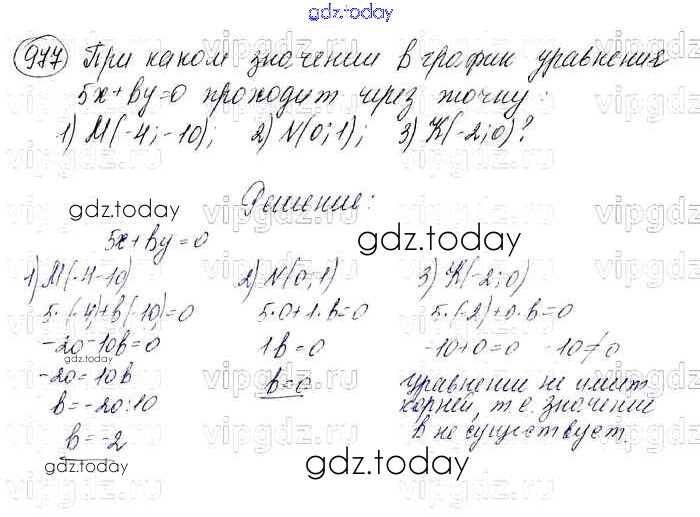 gdz.today
977 При каком значении в график уравнения
5x+вy=0 проходит через точку:
1) M(-4;-10); 2) N(0;1); 3) K(-2;0)?
Решение:
gdz.today
5x+вy=0
gdz.today
1) M(-4-10)
5·(-4)+в(-10)=0
-20-10в=0
gdz.today
-20=10в
в=-20:10
в=-2
gdz.today
2) N(0;1)
5·0+1·в=0
1в=0
в=0
gdz.today
3) K(-2;0)
5·(-2)+0·в=0
-10+0=0 -10≠0
уравнение не имит
корней, т.е. значений
в не существует.
gdz.today
gdz.today
vipgdz.ru